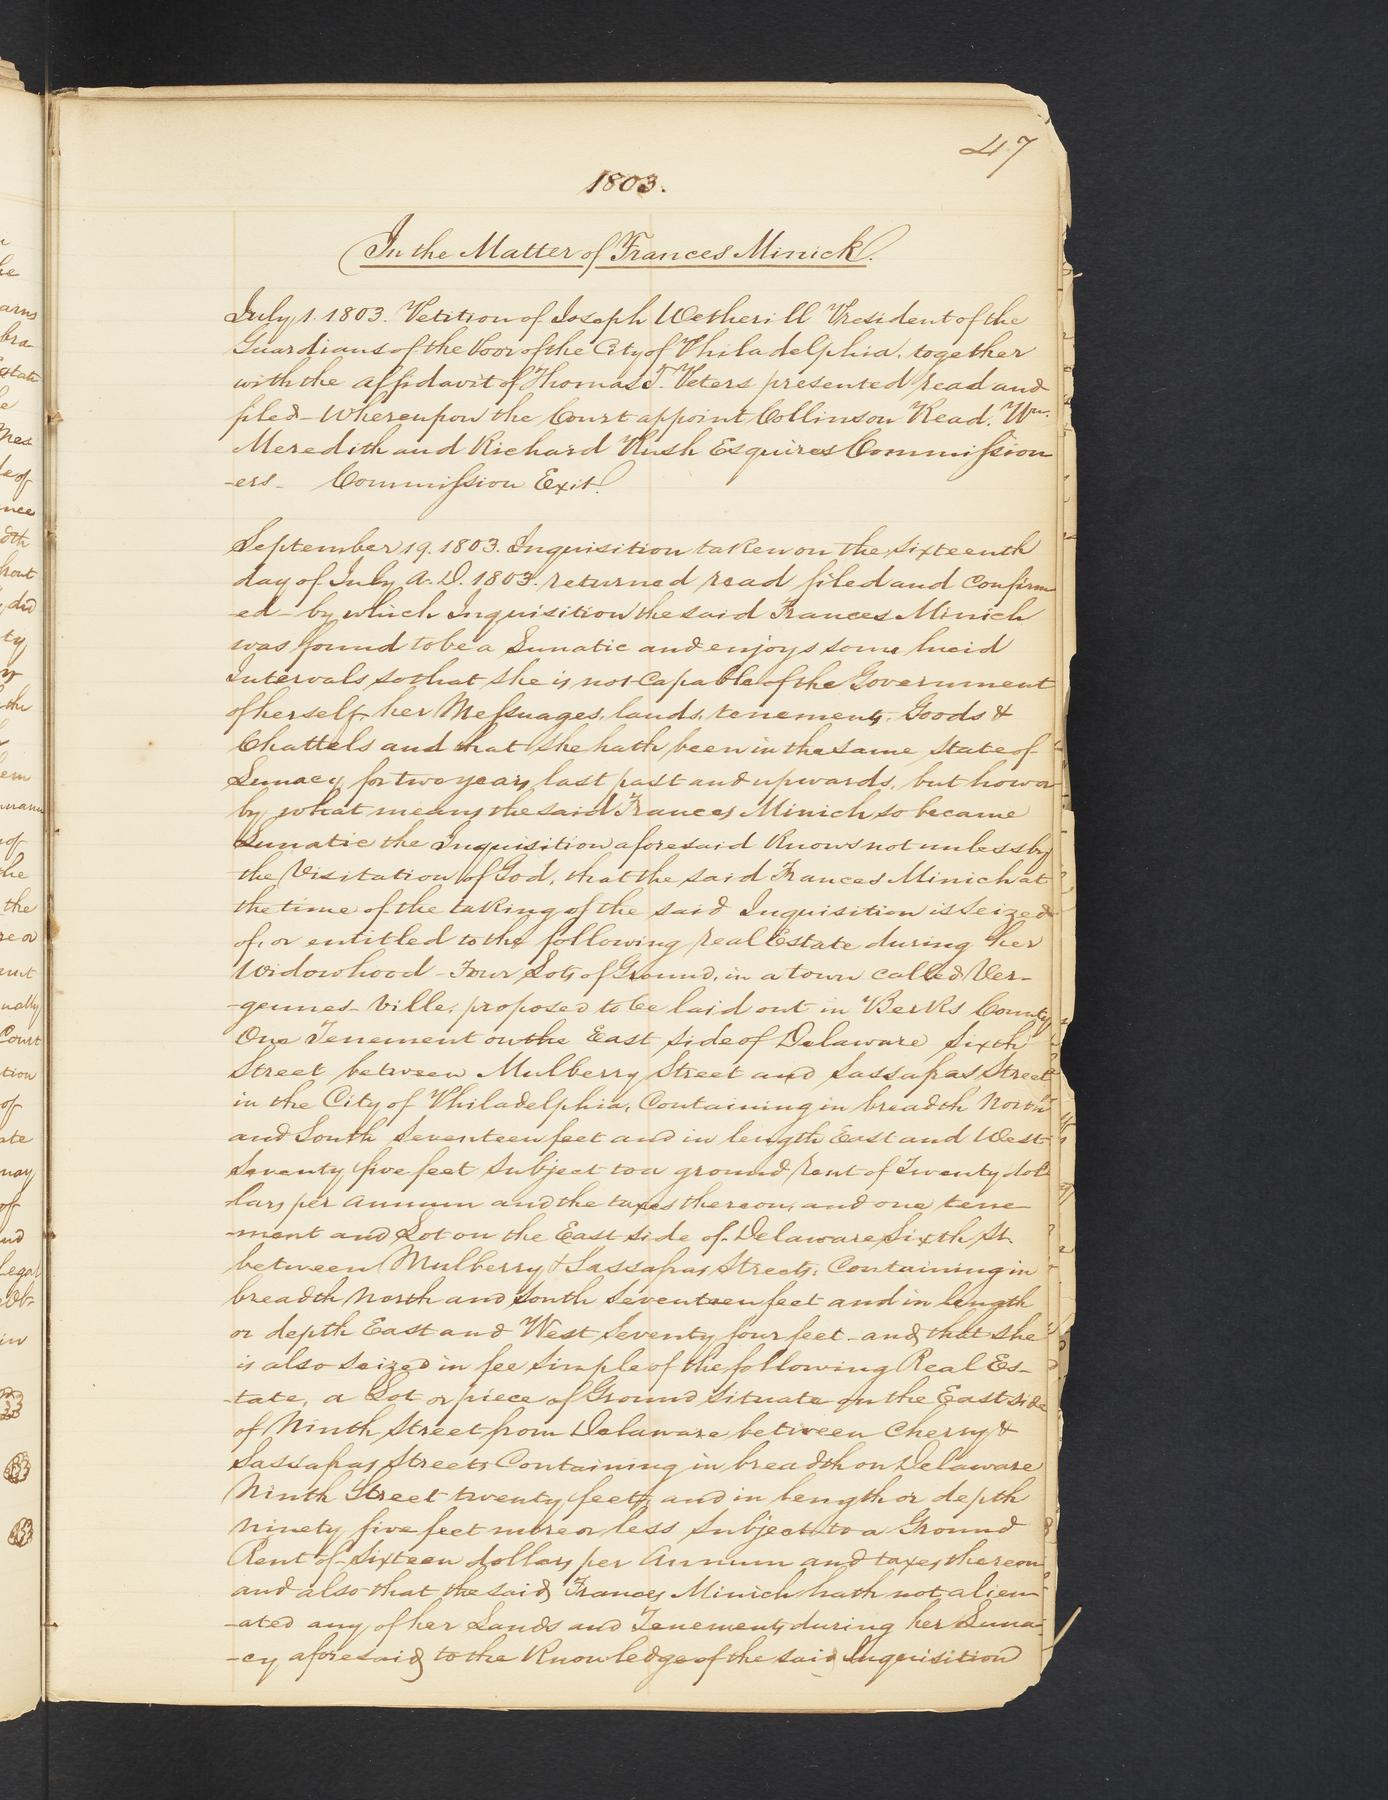 47
1803.
In the Matter of Frances Minick.
July 1. 1803. Petition of Joseph Wetherill President of the
Guardians of the Poor of the City of Philadelphia, together
with the affidavit of Thomas T. Peters presented read and
filed - Whereupon the Court appoint Collinson Read, Wm.
Meredith and Richard Rush Esquires Commission
-ers - Commission Exit.
September 19. 1803. Inquisition taken on the sixteenth
day of July A.D. 1803. returned read filed and confirm
ed - by which Inquisition the said Frances Minich
was found to be a Lunatic and enjoys some lucid
Intervals so that she is not Capable of the Government
of herself her Messuages, lands, tenements, Goods &
Chattels and that she hath been in the same state of
Lunacy for two years last past and upwards, but how or
by what means the said Frances Minich so became
Lunatic the Inquisition aforesaid Knows not unless by
the Visitation of God, that the said Frances Minich at
the time of the taking of the said Inquisition is seized
of, or entitled to the following real Estate during her
Widowhood - Four Lots of Ground, in a town called Ver-
-gennes-ville, proposed to be laid out in Berks County
One Tenement on the East side of Delaware Sixth
Street between Mulberry Street and Sassafras Street
in the City of Philadelphia, Containing in breadth North
and South Seventeen feet and in length East and West
Seventy five feet Subject to a ground rent of Twenty dol
lars per annum and the taxes thereon, and one tene-
-ment and Lot on the East side of Delaware Sixth St.
between Mulberry & Sassafras Streets, Containing in
breadth North and South Seventeen feet and in length
or depth East and West Seventy four feet - and that she
is also seized in fee Simple of the following Real Es-
-tate, a Lot or piece of Ground Situate on the East side
of Ninth Street from Delaware between Cherry &
Sassafras Streets Containing in breadth on Delaware
Ninth Street twenty feet, and in length or depth
ninety five feet more or less Subject to a Ground
Rent of Sixteen dollars per Annum and taxes thereon
and also that the said Frances Minich hath not alien-
-ated any of her Lands and Tenements during her Luna-
-cy aforesaid to the Knowledge of the said Inquisition